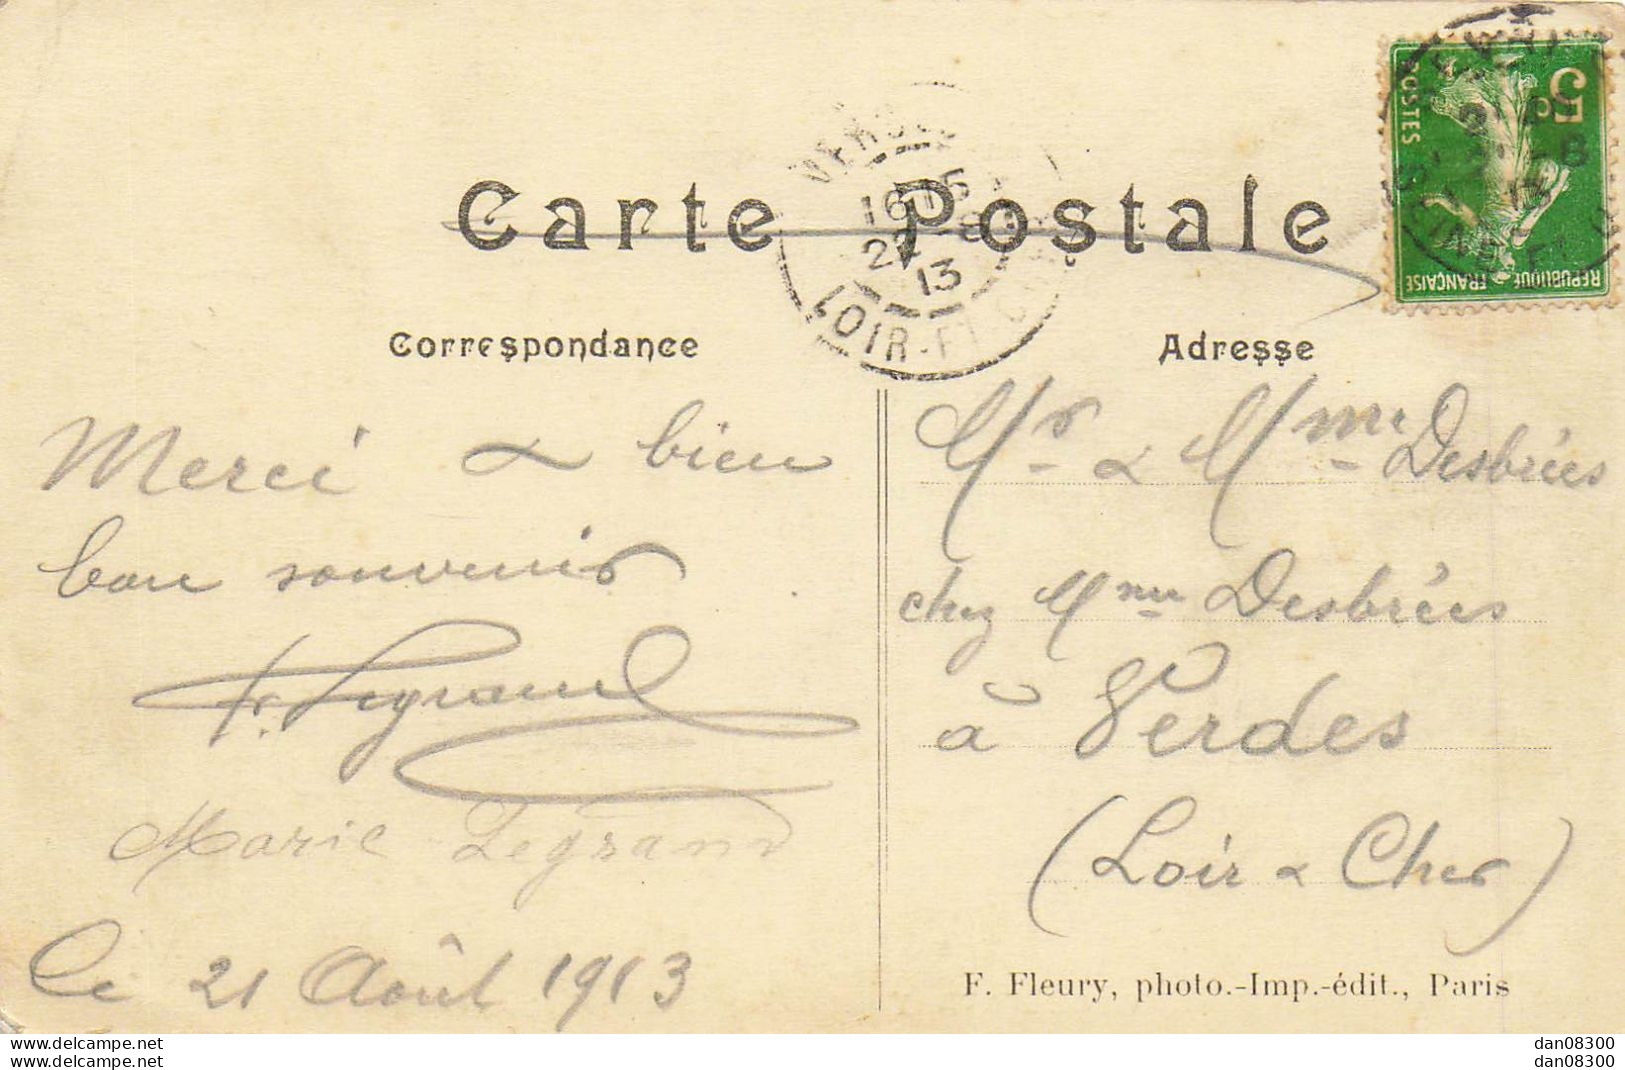 Carte Postale
5c
POSTES
REPUBLIQUE FRANÇAISE
16 15
22 - 8
13
LOIR-ET-CHER
Correspondance
Merci & bien
bon souvenir
Fr. Legrand
Marie Legrand
Le 21 Août 1913
Adresse
Mr & Mme Desbrées
chez Mme Desbrées
à Verdes
(Loir & Cher)
F. Fleury, photo.-Imp.-édit., Paris
www.delcampe.net
www.delcampe.net
dan08300
dan08300